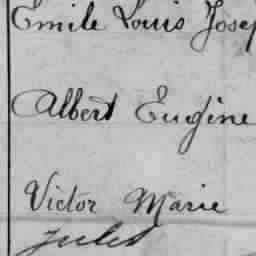 Emile Louis Josep
Albert Eugine
Victor Marie
Jules